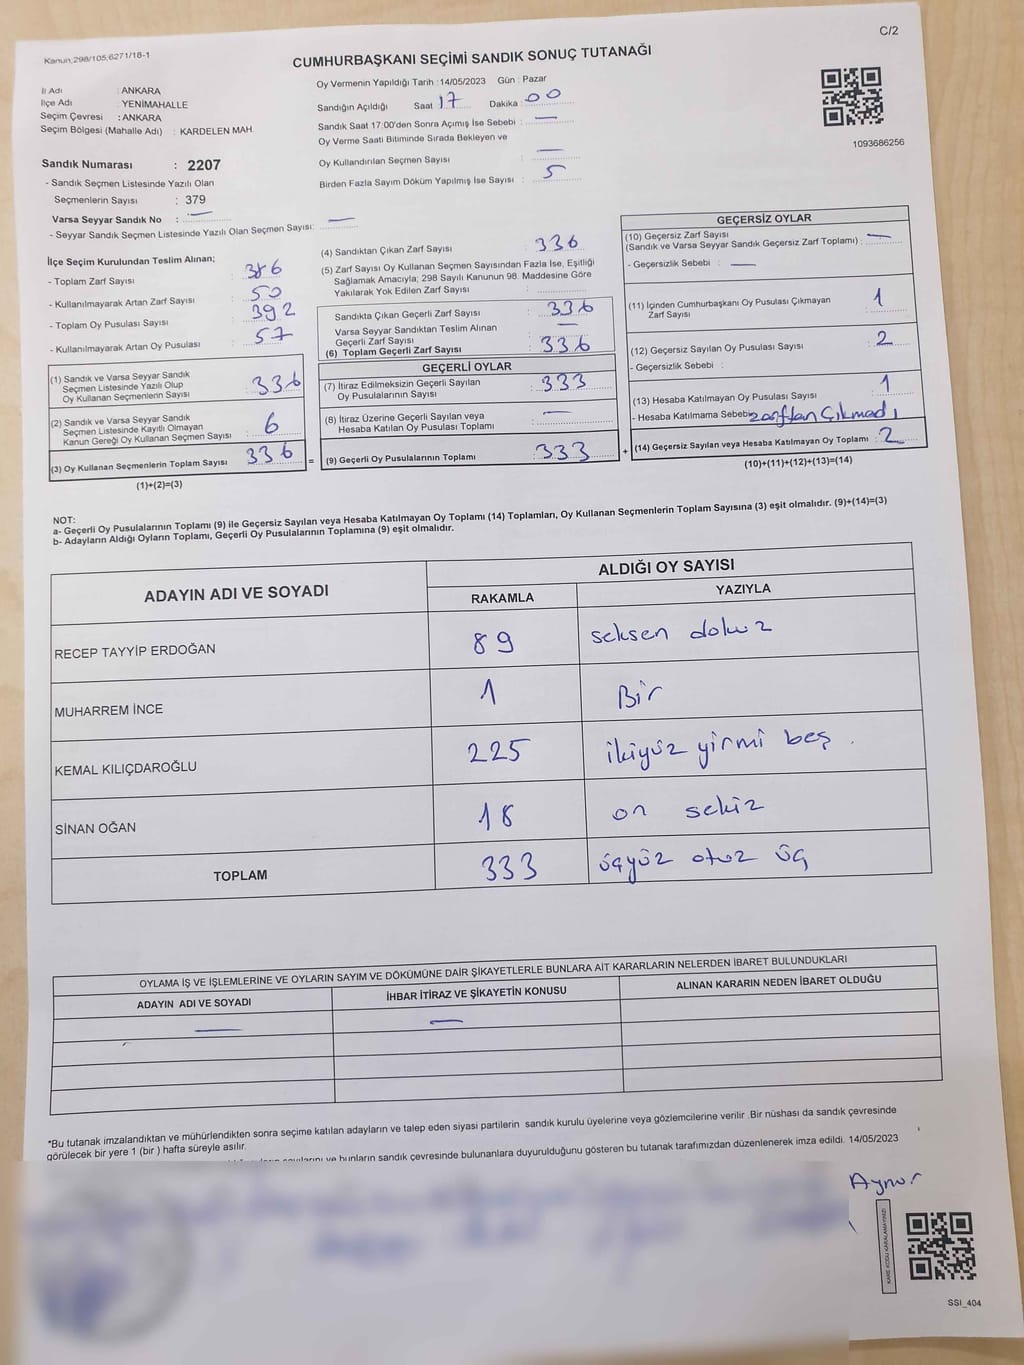 Kanun;298/105;6271/18-1
C/2
CUMHURBAŞKANI SEÇİMİ SANDIK SONUÇ TUTANAĞI
İl Adı : ANKARA
İlçe Adı : YENİMAHALLE
Seçim Çevresi : ANKARA
Seçim Bölgesi (Mahalle Adı) : KARDELEN MAH.
Sandık Numarası : 2207
- Sandık Seçmen Listesinde Yazılı Olan
Seçmenlerin Sayısı : 379
Varsa Seyyar Sandık No : —
- Seyyar Sandık Seçmen Listesinde Yazılı Olan Seçmen Sayısı: —
Oy Vermenin Yapıldığı Tarih :14/05/2023 Gün : Pazar
Sandığın Açıldığı Saat 17 Dakika 00
Sandık Saat 17:00'den Sonra Açımış İse Sebebi : —
Oy Verme Saati Bitiminde Sırada Bekleyen ve
Oy Kullandırılan Seçmen Sayısı : —
Birden Fazla Sayım Döküm Yapılmış İse Sayısı : 5
1093686256
İlçe Seçim Kurulundan Teslim Alınan;
- Toplam Zarf Sayısı : 386
- Kullanılmayarak Artan Zarf Sayısı : 50
- Toplam Oy Pusulası Sayısı : 392
- Kullanılmayarak Artan Oy Pusulası : 57
(1) Sandık ve Varsa Seyyar Sandık
Seçmen Listesinde Yazılı Olup
Oy Kullanan Seçmenlerin Sayısı : 336
(2) Sandık ve Varsa Seyyar Sandık
Seçmen Listesinde Kayıtlı Olmayan
Kanun Gereği Oy Kullanan Seçmen Sayısı : 6
(3) Oy Kullanan Seçmenlerin Toplam Sayısı : 336
(1)+(2)=(3)
=
(4) Sandıktan Çıkan Zarf Sayısı : 336
(5) Zarf Sayısı Oy Kullanan Seçmen Sayısından Fazla İse, Eşitliği
Sağlamak Amacıyla; 298 Sayılı Kanunun 98. Maddesine Göre
Yakılarak Yok Edilen Zarf Sayısı :
Sandıkta Çıkan Geçerli Zarf Sayısı : 336
Varsa Seyyar Sandıktan Teslim Alınan
Geçerli Zarf Sayısı : —
(6) Toplam Geçerli Zarf Sayısı : 336
GEÇERLİ OYLAR
(7) İtiraz Edilmeksizin Geçerli Sayılan
Oy Pusulasının Sayısı : 333
(8) İtiraz Üzerine Geçerli Sayılan veya
Hesaba Katılan Oy Pusulası Toplamı : —
(9) Geçerli Oy Pusulalarının Toplamı : 333
+
GEÇERSİZ OYLAR
(10) Geçersiz Zarf Sayısı
(Sandık ve Varsa Seyyar Sandık Geçersiz Zarf Toplamı) : —
- Geçersizlik Sebebi : —
(11) İçinden Cumhurbaşkanı Oy Pusulası Çıkmayan
Zarf Sayısı : 1
(12) Geçersiz Sayılan Oy Pusulası Sayısı : 2
- Geçersizlik Sebebi :
(13) Hesaba Katılmayan Oy Pusulası Sayısı : 1
- Hesaba Katılmama Sebebi: zarftan Çıkmadı
(14) Geçersiz Sayılan veya Hesaba Katılmayan Oy Toplamı : 2
(10)+(11)+(12)+(13)=(14)
NOT:
a- Geçerli Oy Pusulalarının Toplamı (9) ile Geçersiz Sayılan veya Hesaba Katılmayan Oy Toplamı (14) Toplamları, Oy Kullanan Seçmenlerin Toplam Sayısına (3) eşit olmalıdır. (9)+(14)=(3)
b- Adayların Aldığı Oyların Toplamı, Geçerli Oy Pusulalarının Toplamına (9) eşit olmalıdır.
ADAYIN ADI VE SOYADI
ALDIĞI OY SAYISI
RAKAMLA YAZIYLA
RECEP TAYYİP ERDOĞAN 89 seksen dokuz
MUHARREM İNCE 1 Bir
KEMAL KILIÇDAROĞLU 225 ikiyüz yirmi beş .
SİNAN OĞAN 18 on sekiz
TOPLAM 333 üçyüz otuz üç
OYLAMA İŞ VE İŞLEMLERİNE VE OYLARIN SAYIM VE DÖKÜMÜNE DAİR ŞİKAYETLERLE BUNLARA AİT KARARLARIN NELERDEN İBARET BULUNDUKLARI
ADAYIN ADI VE SOYADI İHBAR İTİRAZ VE ŞİKAYETİN KONUSU ALINAN KARARIN NEDEN İBARET OLDUĞU
— —
*Bu tutanak imzalandıktan ve mühürlendikten sonra seçime katılan adayların ve talep eden siyasi partilerin sandık kurulu üyelerine veya gözlemcilerine verilir .Bir nüshası da sandık çevresinde
görülecek bir yere 1 (bir ) hafta süreyle asılır.
ve bunların sandık çevresinde bulunanlara duyurulduğunu gösteren bu tutanak tarafımızdan düzenlenerek imza edildi. 14/05/2023
Aynur
KARE KODU KARALAMAYINIZ
SSI_404